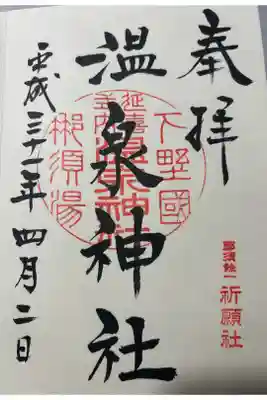 奉拝
下野國
延喜式内温泉神社
那須湯
温泉神社
那須餘一
祈願社
平成三十一年四月二日